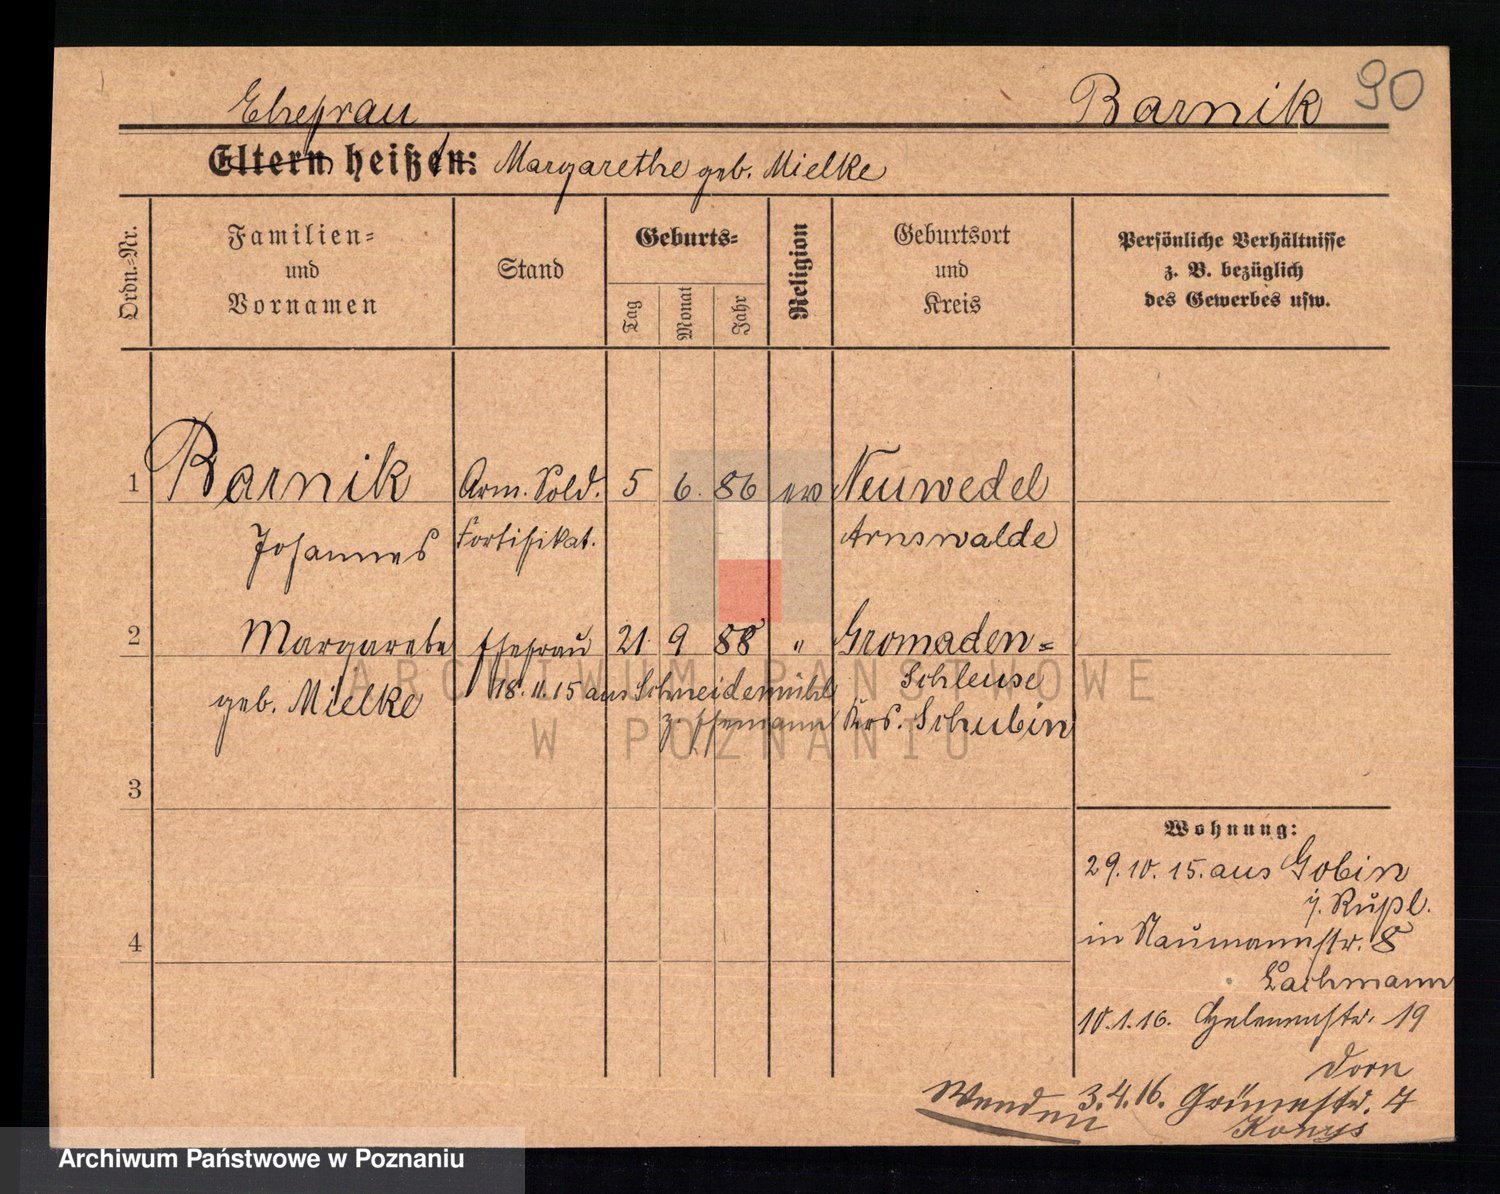 Ehefrau Barnik 90
Eltern heißen: Margarethe geb. Mielke
Ordn.-Nr.
Familien-
und
Vornamen
Stand
Geburts-
Tag
Monat
Jahr
Religion
Geburtsort
und
Kreis
Persönliche Verhältnisse
z. B. bezüglich
des Gewerbes usw.
1 Barnik Arm. Sold. 5 6. 86 ev Neuwedel
Johannes Fortifikat. Arnswalde
2 Margarete Ehefrau 21. 9 88 " Gromaden-
geb. Mielke 18.11.15 aus Schneidemühl Schleuse
z. Ehemann Krs. Schubin
3
4
Wohnung:
29.10.15. aus Gobin
in Naumannstr. 8
Lachmann
10.1.16. Helenenstr. 19
Dorn
Wenden 3.4.16. Grünestr. 4
ARCHIWUM PAŃSTWOWE
W POZNANIU
Archiwum Państwowe w Poznaniu